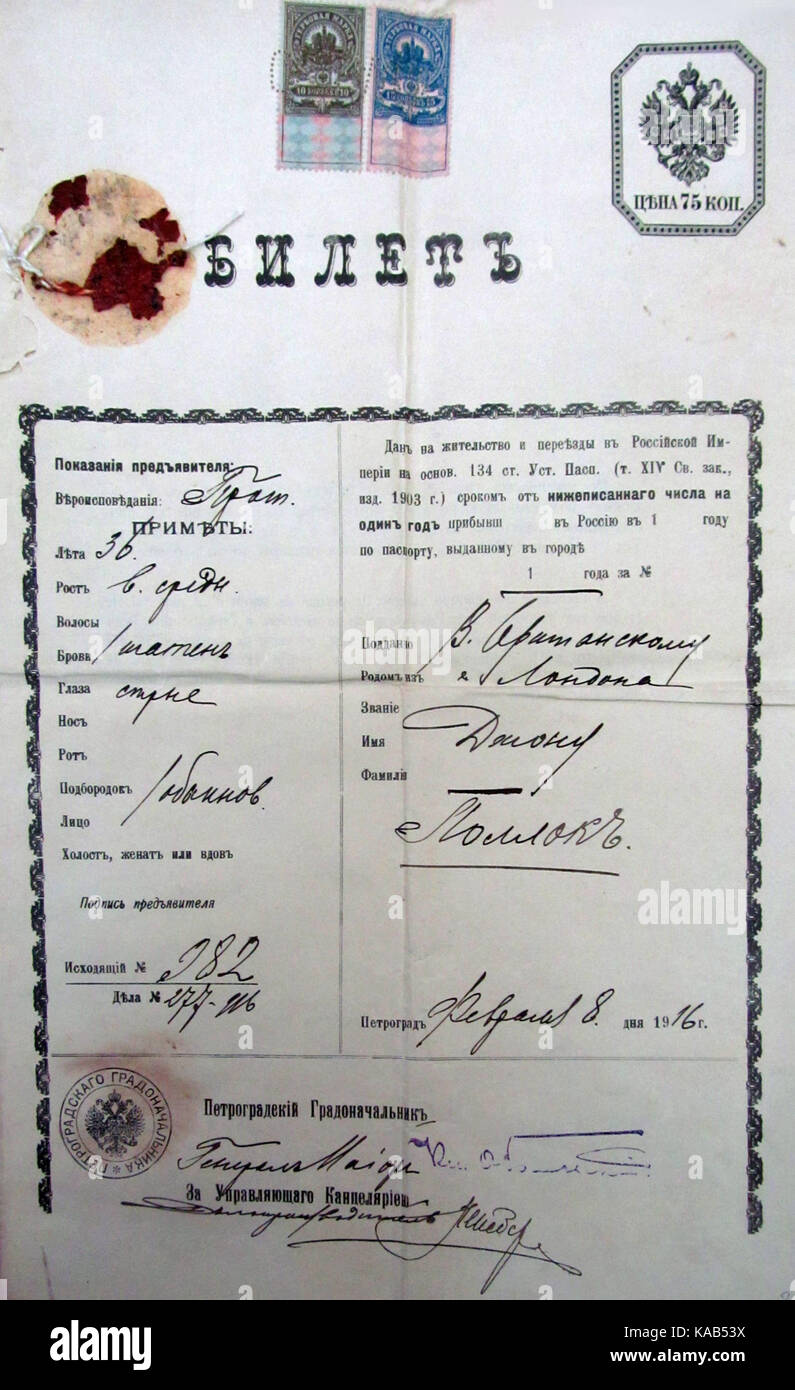 ГЕРБОВАЯ МАРКА
10 КОПѢЕКЪ 10
ГЕРБОВАЯ МАРКА
15 КОПѢЕКЪ 15
ЦѢНА 75 КОП.
БИЛЕТЪ
Показанія предъявителя:
Вѣроисповѣданія: Прот.
ПРИМѢТЫ:
Лѣта 36.
Ростъ в. средн.
Волосы
Брови шатенъ
Глаза сѣрые
Носъ
Ротъ
Подбородокъ обыкнов.
Лицо
Холостъ, женатъ или вдовъ
Подпись предъявителя
Исходящій № 982
Дѣла № 277-916
Данъ на жительство и переѣзды въ Россійской Им-
періи на основ. 134 ст. Уст. Пасп. (т. XIV Св. зак.,
изд. 1903 г.) срокомъ отъ нижеписаннаго числа на
одинъ годъ прибывш въ Россію въ 1 году
по паспорту, выданному въ городѣ
1 года за №
Подданію В. Британскому
Родомъ изъ Лондона
Званіе
Имя Джону
Фамилія
Поллокъ.
Петроградъ Февраля 8. дня 1916 г.
ПЕТРОГРАДСКАГО ГРАДОНАЧАЛЬНИКА
Петроградскій Градоначальникъ
Генералъ Маіоръ Кн. Оболенскій
За Управляющаго Канцеляріею
Дѣлопроизводитель
alamy
alamy stock photo
Image ID: KAB53X
www.alamy.com